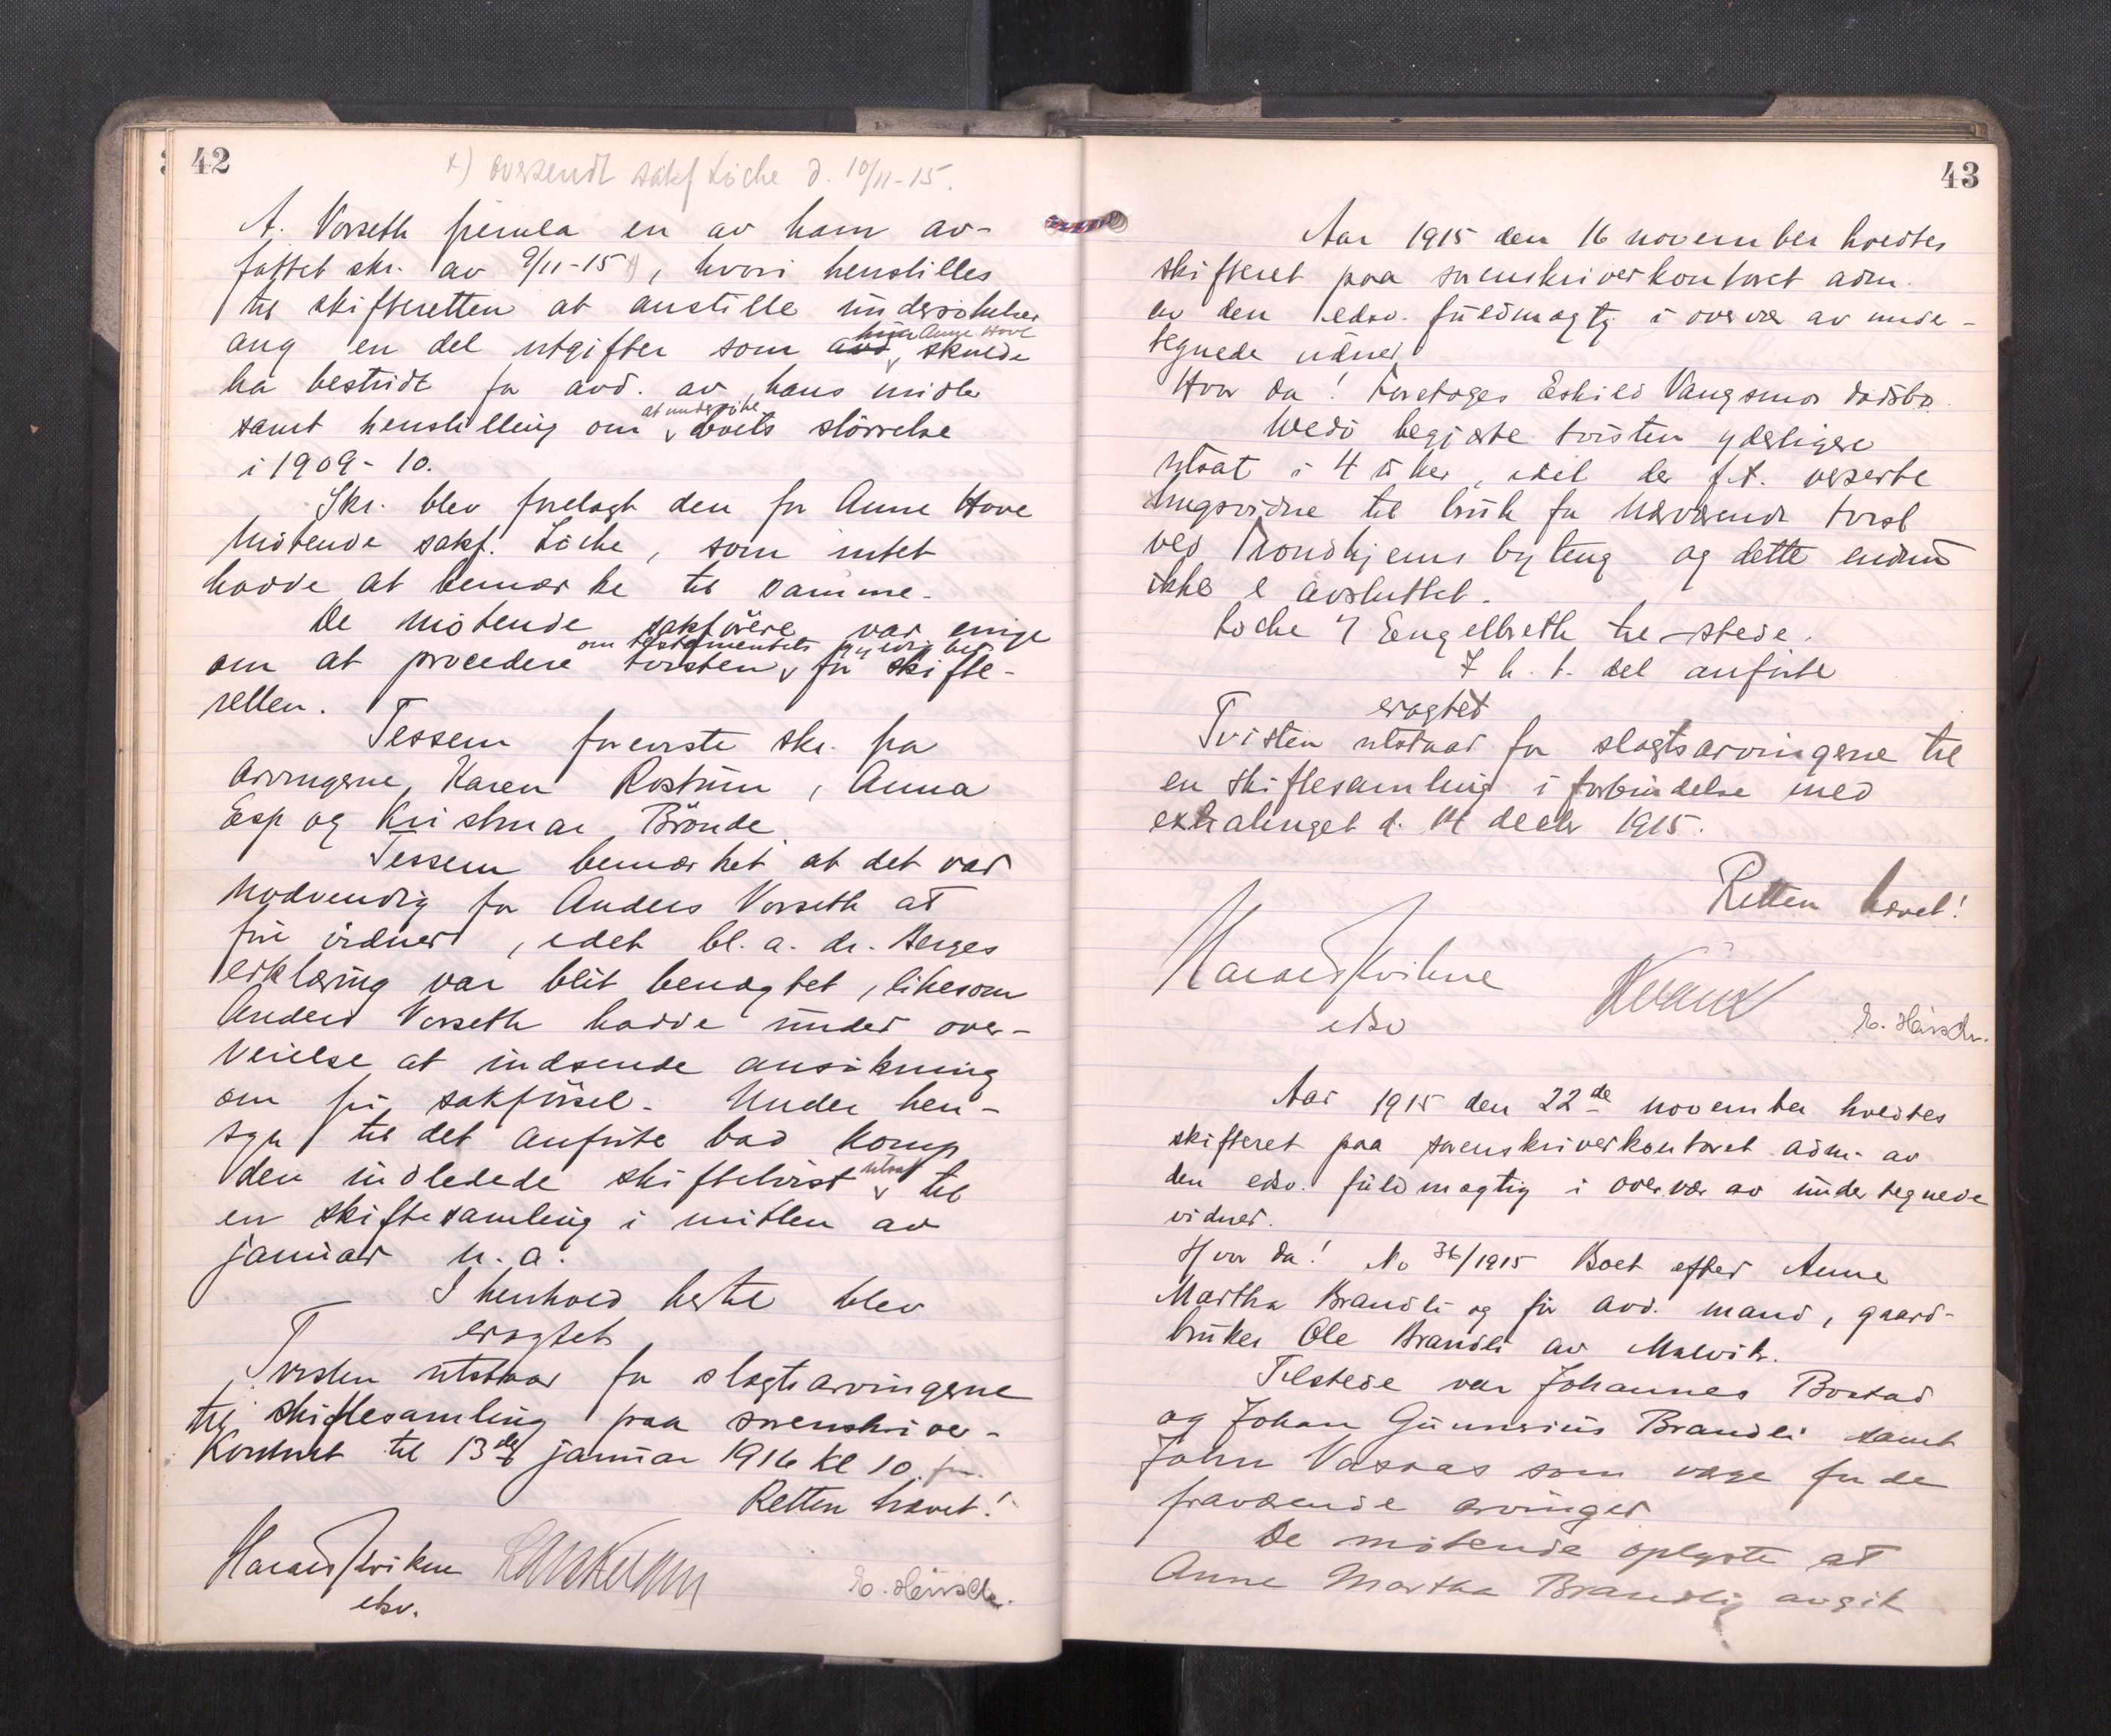 42
x) oversendt sakf Löche d. 10/11-15.
A. Vorseth fremla en av ham av-
fattet skr. av 9/11-15 x), hvori henstilles
til skifteretten at anstille undersökelser
ang en del utgifter som avd hvor Anne Hove skulde
ha bestridt for avd. av hans midler
samt henstilling om at undersöke boets större​lse
i 1909-10.
Skr. blev forelagt den for Anne Hove
mötende sakf. Löche, som intet
hadde at bemærke til samme.
De mötende sakförere var enige
om at procedere tvisten om testamentets gyldighet for skifte-
retten.
Tessem foreviste skr. fra
arvingerne, Karen Rostum, Anna
Esp og Kristmar Brönde.
Tessem bemærket at det var
nödvendig for Anders Vorseth at
före vidner, idet bl. a. dr. Berges
erklæring var blit benegtet, likesom
Anders Vorseth hadde under over-
veielse at indsende ansökning
om fri sakförsel. Under hen-
syn til det anförte bad komp
den indledede skiftetvist utsat til
en skiftesamling i midten av
januar n. a.
I henhold hertil blev
eragtet
Tvisten utstaar for slegtsarvingerne
til skiftesamling paa sorenskriver-
kontoret til 13de januar 1916 kl 10 fm.
Retten hævet!
Harald Kvikne
edsv.
E. Hirsch.
43
Aar 1915 den 16 november holdtes
skifteret paa sorenskriverkontoret adm.
av den edsv. fuldmægtig i overvær av under-
tegnede vidner
Hvor da! Foretoges Eskild Vangsmos dödsbo.
Wedö begjærte tvisten yderligere
utsat i 4 uker, idet der f.t. opserte
tingsvidne til bruk for nærværende tvist
ved Trondhjems byting og dette endnu
ikke er avsluttet.
Löche & Engelbreth til-stede.
I h. t. det anförte
eragtet
Tvisten utstaar for slegtsarvingerne til
en skiftesamling i forbindelse med
extratinget d. 14 decbr 1915.
Retten hævet!
Harald Kvikne
edsv
E. Hirsch.
Aar 1915 den 22de november holdtes
skifteret paa sorenskriverkontoret adm. av
den edsv. fuldmægtig i overvær av undertegnede
vidner.
Hvor da! No 36/1915 Boet efter Anne
Martha Brandli og för avd. mand, gaard-
bruker Ole Brandli av Malvik.
Tilstede var Johannes Bostad
og Johan Gunnerius Brandli samt
John Vasaas som verge for de
fraværende arvinger
De mötende oplyste at
Anne Martha Brandli avgik